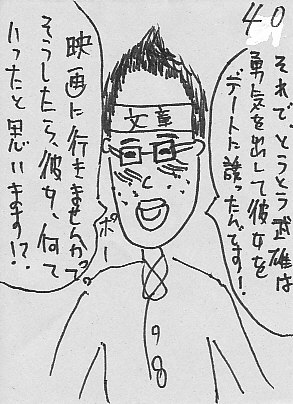 40
それで、とうとう武雄は
勇気を出して彼女を
デートに誘ったんです!
文章
ポー
映画に行きませんか?って。
そうしたら、彼女、何て
いったと思います!?